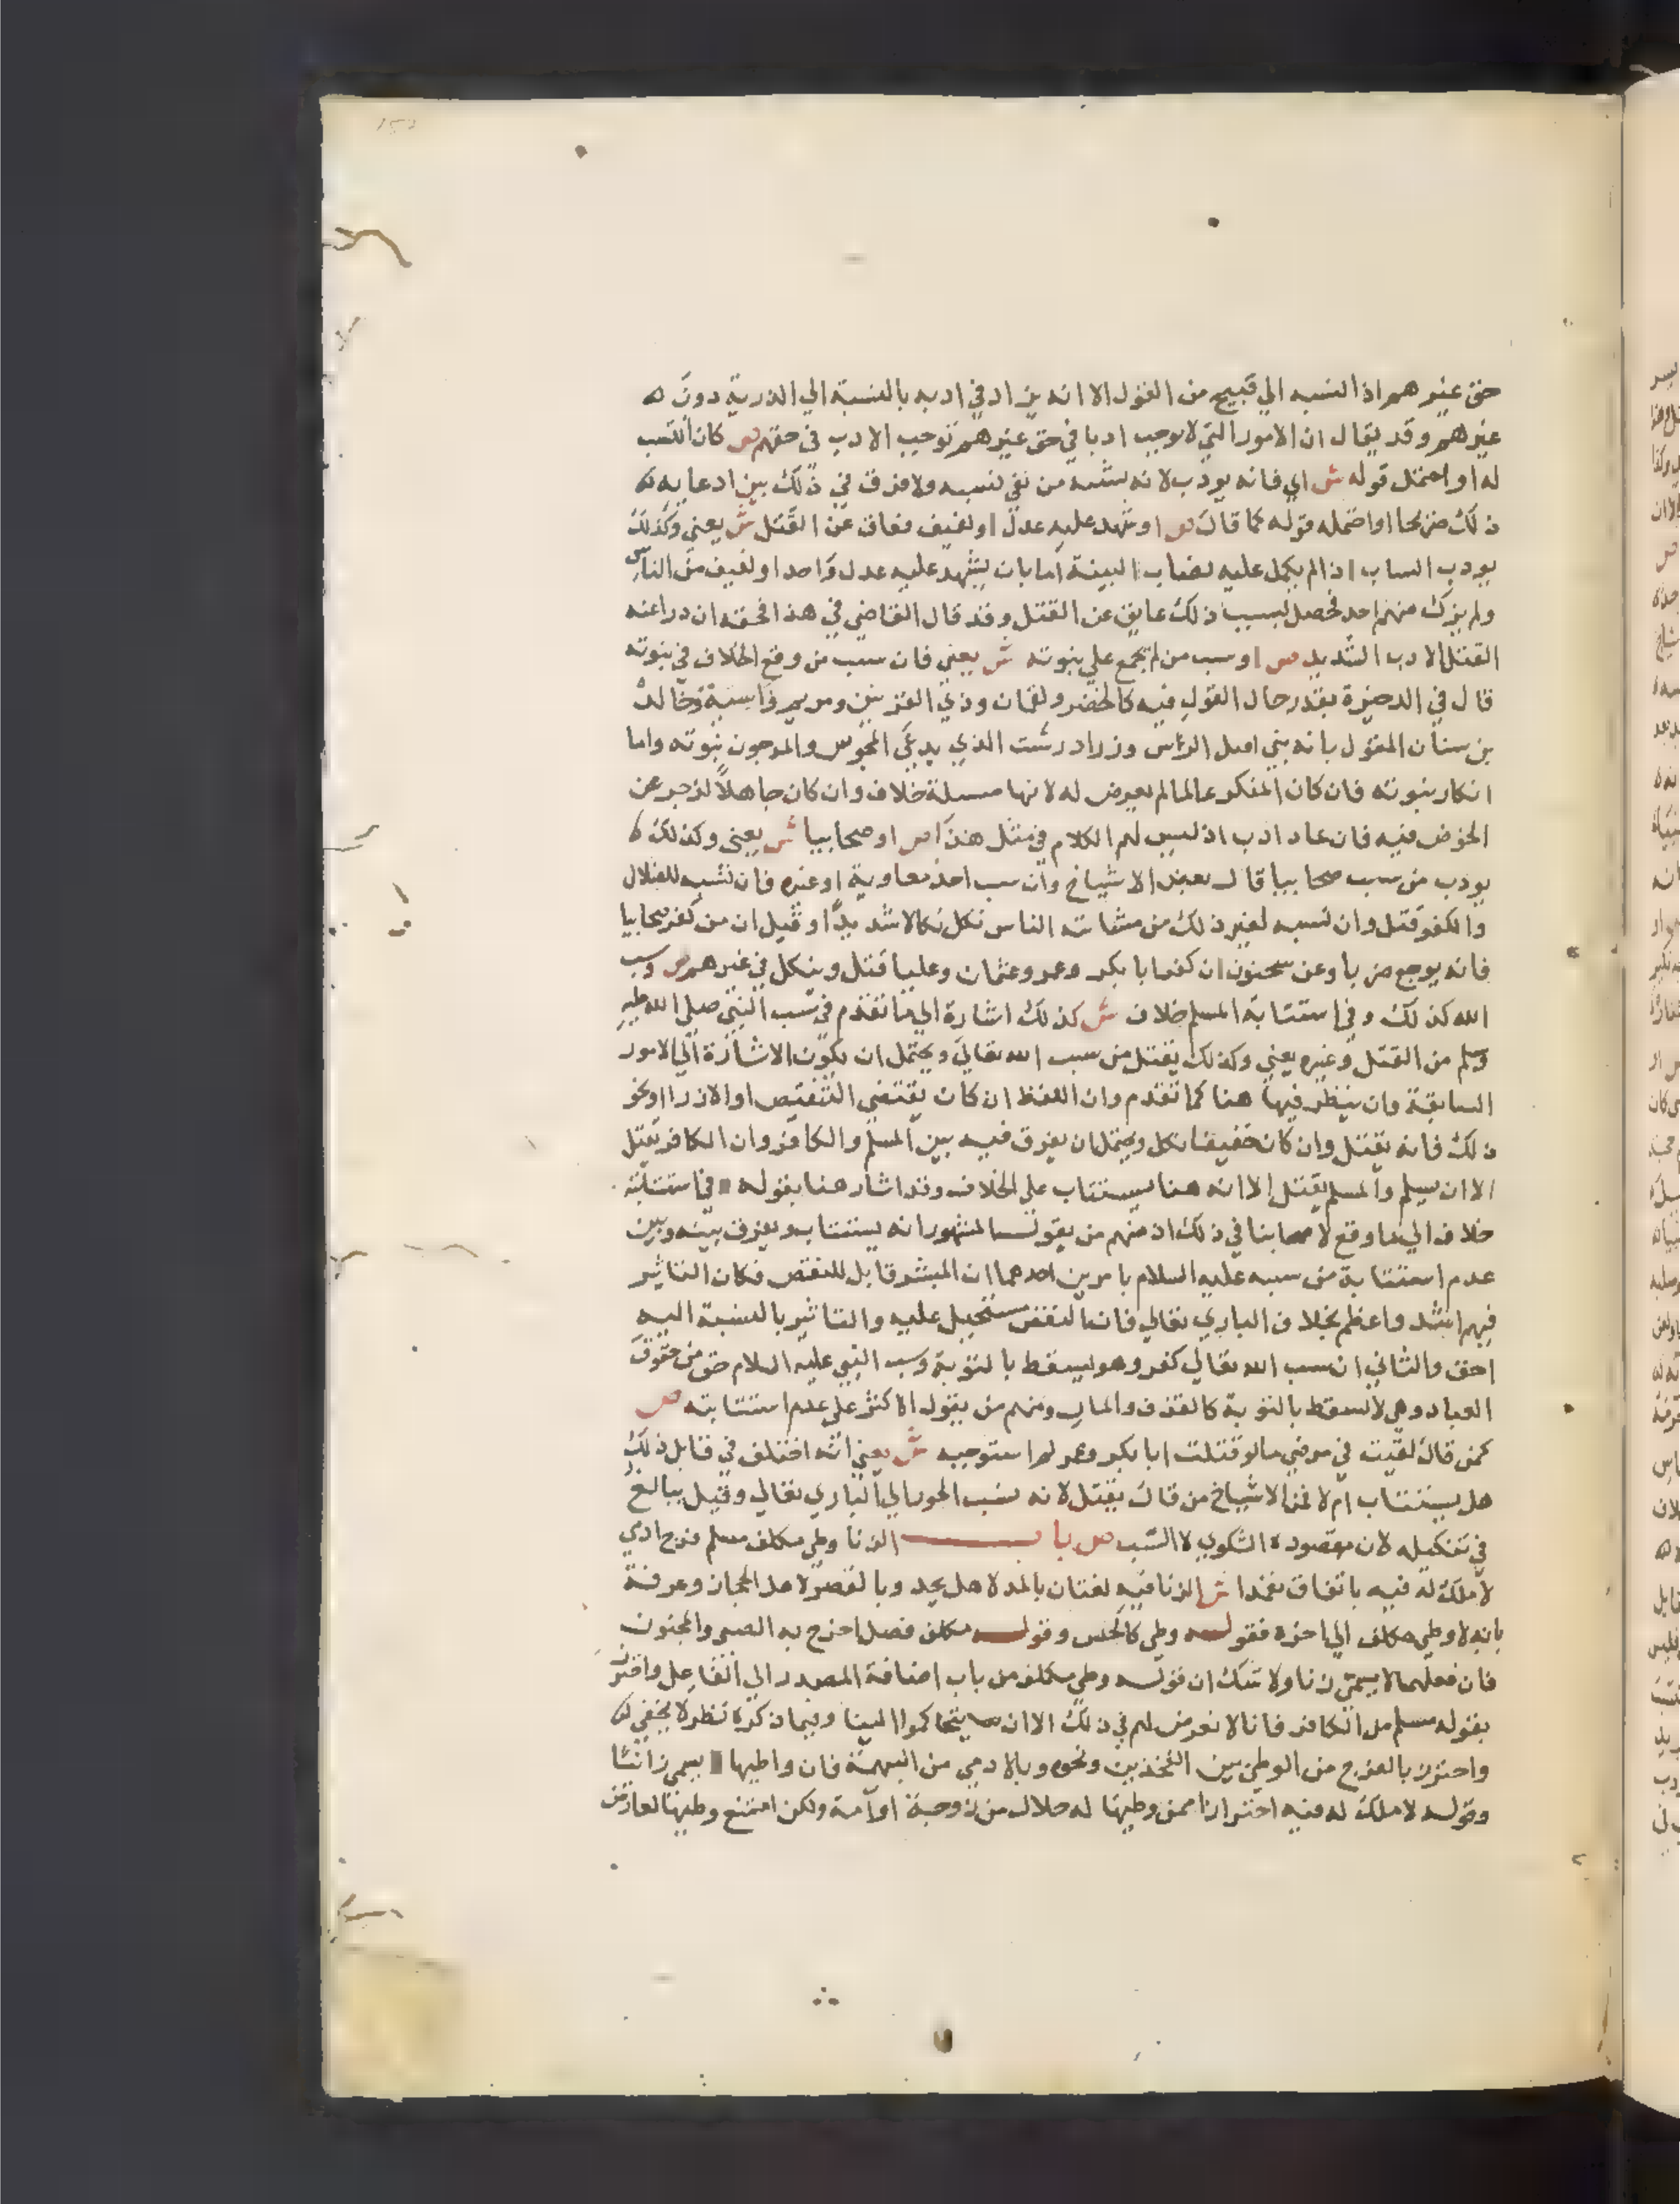 حق غيرهم اذ النسبه الي قبيح من القول الا انه يزاد في ادبه بالنسبة الي الذرية دون
غيرهم وقد يقال ان الامور التي لا توجب ادبا في حق غيرهم توجب الادب في حقهم ص كان انتسب
له او احتمل قوله ش اي فانه يودب لانه يشبه من نفي نسبه ولا فرق في ذلك بين ادعايه
ذلك صريحا او احتمله قوله كما قال ص او شهد عليه عدل او لفيف فعاق عن القتل ش يعني وكذلك
يودب الساب اذا لم يكمل عليه نصاب البينة اما بان يشهد عليه عدل واحد او لفيف من الناس
ولم يزك منهم احد فحصل بسبب ذلك عايق عن القتل وقد قال القاضي في هذا فحقه ان درا عنه
القتل الادب الشديد ص او سب من لم يجمع علي نبوته ش يعني فان سب من وقع الخلاف في نبوته
قال في الدخيرة بقدر حال القول فيه كالخضر ولقمان وذي القرنين ومريم واسية وخالد
بن سنان المقول بانه نبي اهل الرس وزرادرشت الذي يدعي المجوس والمرجون نبوته واما
انكار نبوته فان كان المنكر عالما لم يعرض له لانها مسيلة خلاف وان كان جاهلا زجر عن
الخوض فيه فان عاد ادب اذ ليس لهم الكلام في مثل هذا ص او صحابيا ش يعني وكذلك
يودب من سب صحابيا قال بعض الاشياخ وان سب احد معاوية او غيره فان نسبه للضلال
والكفر قتل وان نسبه لغير ذلك من مشاتمة الناس نكل نكالا شديدا وقيل ان من كفر صحابيا
فانه يوجع ضربا وعن سحنون ان كفر ابا بكر وعمر وعثمان وعليا قتل وينكل في غيرهم ص وسب
الله كذلك وفي استتابة المسلم خلاف ش كذلك اشارة الي ما تقدم في سب النبي صلي الله عليه
وسلم من القتل وغيره يعني وكذلك يقتل من سب الله تعالي ويحتمل ان يكون الاشارة الي الامور
السابقة وان ينظر فيها هنا كما تقدم وان اللفظ ان كان يقتضي التنقيص او الازرا او نحو
ذلك فانه يقتل وان كان خفيفا نكل ويحتمل ان يفرق فيه بين المسلم والكافر وان الكافر يقتل
الا ان يسلم والمسلم يقتل الا انه هنا يستتاب علي الخلاف وقد اشار هنا بقوله في استتابته
خلاف الي ما وقع لاصحابنا في ذلك اذ منهم من يقول المشهور انه يستتاب ويفرق بينه وبين
عدم استتابة من سبه عليه السلام بامرين احدهما ان البشر قابل للنقص فكان التاثير
فيهم اشد واعظم بخلاف الباري تعالي فان النقص مستحيل عليه والتاثير بالنسبة اليه
اخف والثاني ان سب الله تعالي كفر وهو يسقط بالتوبة وسب النبي عليه السلام حق من حقوق
العباد وهي لا تسقط بالتوبة كالقذف والمال ومنهم من يقول الاكثر علي عدم استتابته ص
كمن قال لقيت في مرضي ما لو قتلت ابا بكر وعمر لم استوجبه ش يعني انه اختلف في قايل ذلك
هل يستتاب ام لا فمن الاشياخ من قال يقتل لانه نسب الجور الي الباري تعالي وقيل يبالغ
في تنكيله لان مقصوده الشكوي لا السب ص باب الزنا وطي مكلف مسلم فرج ادمي
لا ملك له فيه باتفاق تعمدا ش الزنا فيه لغتان بالمد لاهل نجد وبالقصر لاهل الحجاز وعرفه
بانه وطي مكلف الي اخره فقوله وطي كالجنس وقوله مكلف فصل اخرج به الصبي والمجنون
فان فعلهما لا يسمي زنا ولا شك ان قوله وطي مكلف من باب اضافة المصدر الي الفاعل واحترز
بقوله مسلم من الكافر فانا لا نعرض لهم في ذلك الا ان يتحاكموا الينا وفيما ذكره نظر لا يخفي
واحترز بالفرج من الوطي بين الفخذين ونحوه وبالادمي من البهيمة فان واطيها يسمي زانيا
وقوله لا ملك له فيه احترازا ممن وطيها له حلال من زوجة او امة ولكن امتنع وطيها لعارض